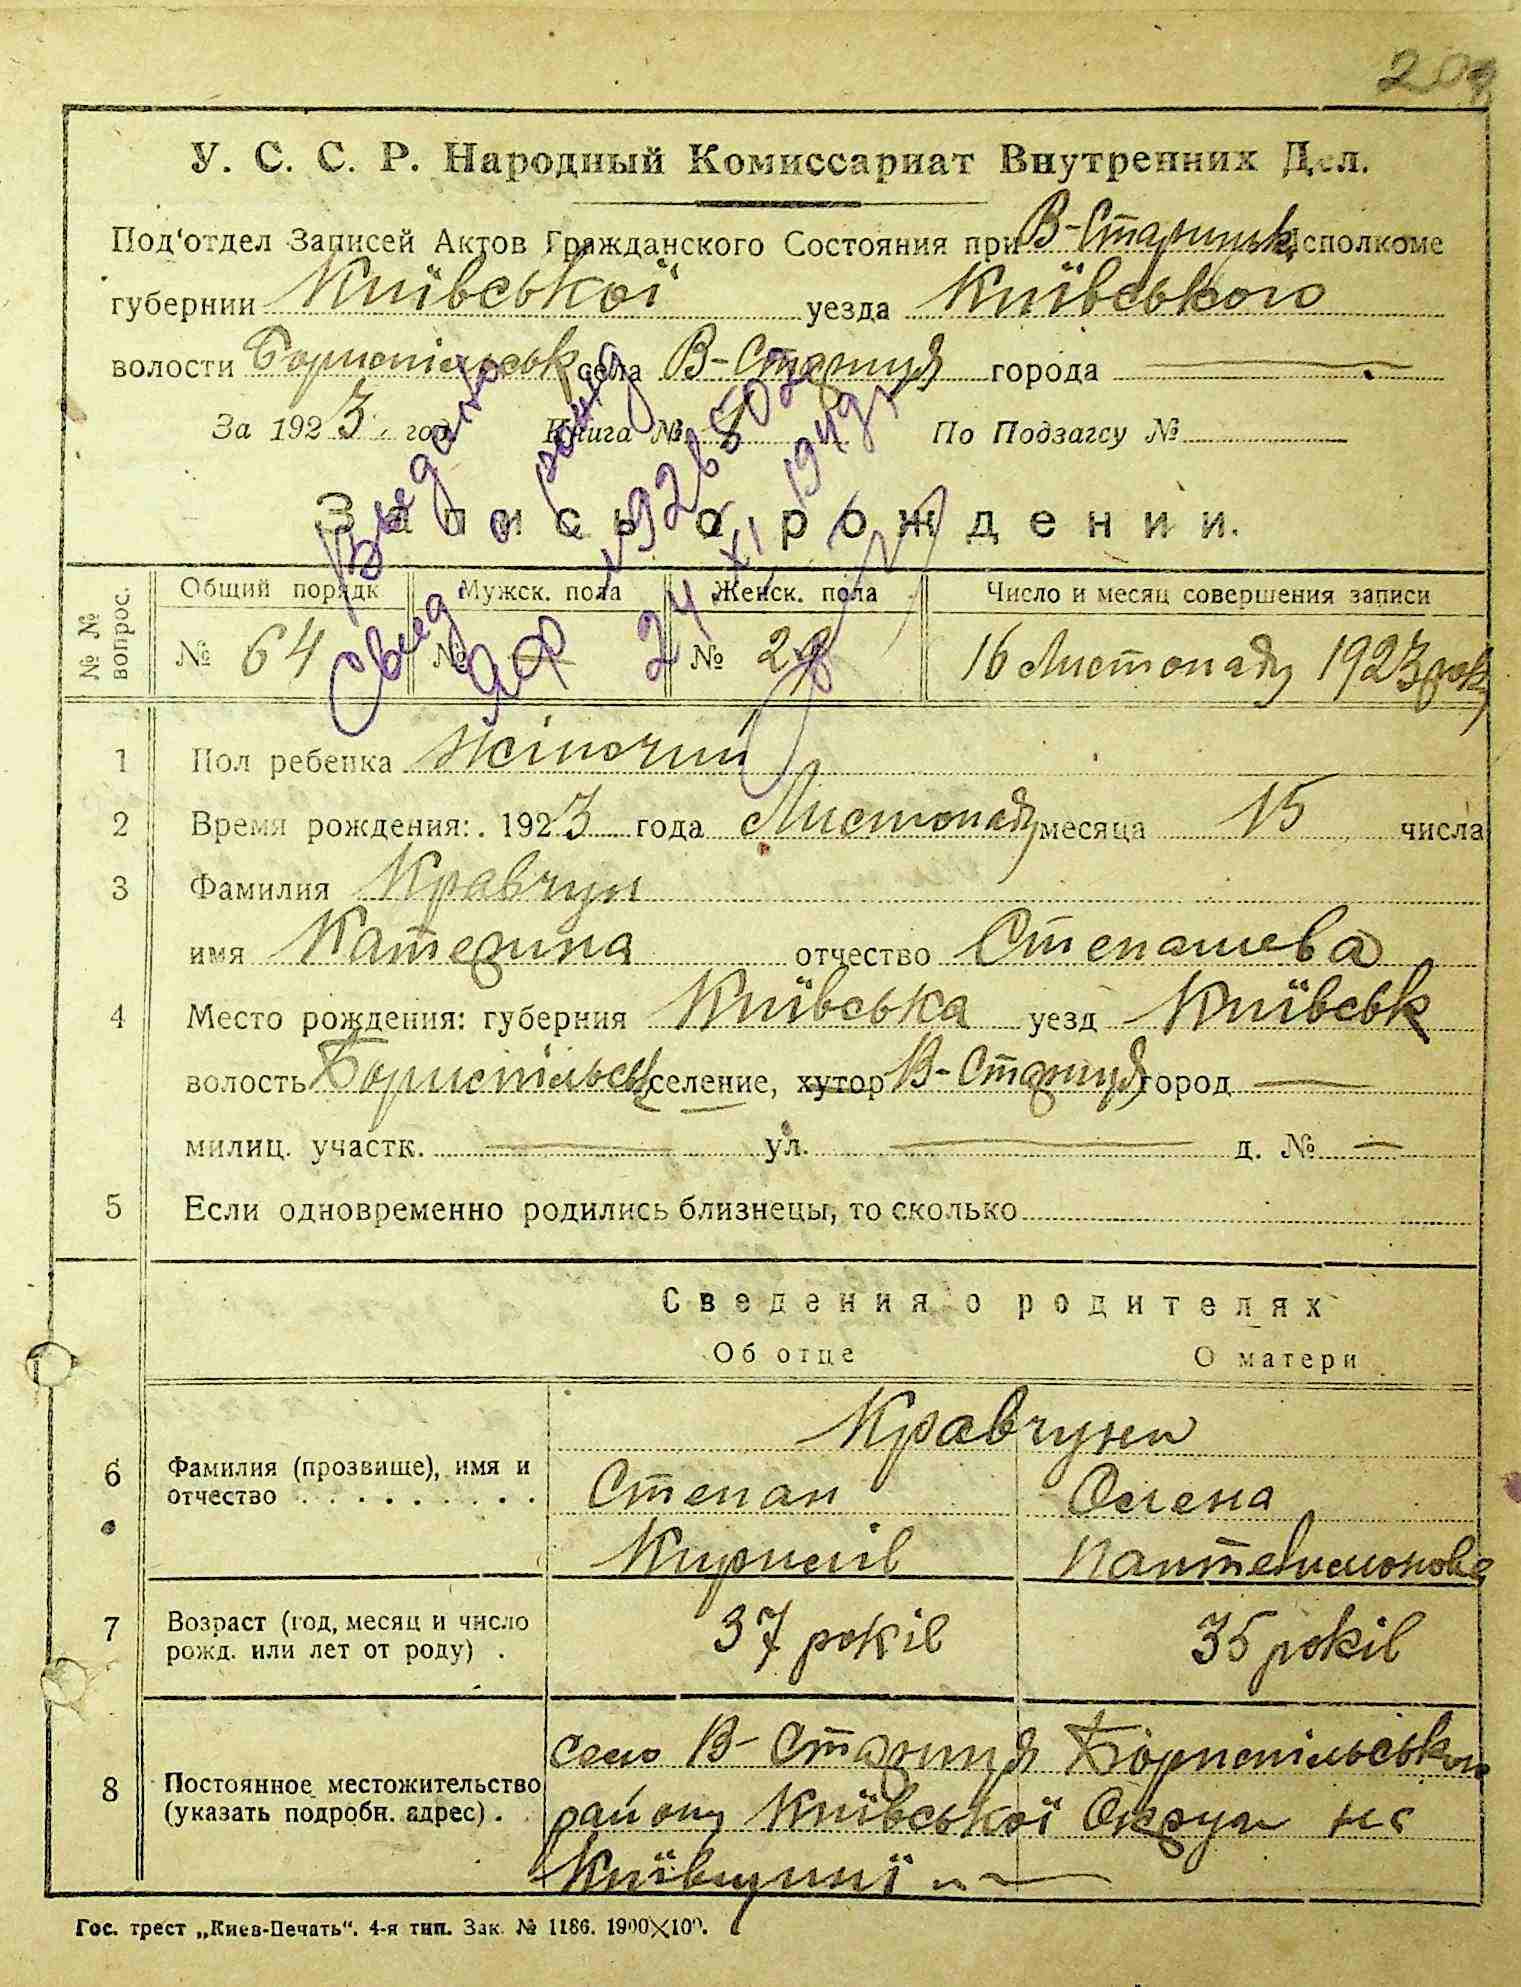 209
У. С. С. Р. Народный Комиссариат Внутренних Дел.
Под'отдел Записей Актов Гражданского Состояния при В-Стариць. Исполкоме
губернии Київської уезда Київського
волости Бориспільськ села В-Стариця города —
За 1923 год Книга № 1 По Подзагсу №
Запись о рождении.
№ № вопрос. Общий порядк Мужск. пола Женск. пола Число и месяц совершения записи
№ 64 № — № 29 16 Листопаду 1923 року
Видано
Свид о рожд
ЯФ 1926850
24 XI 1949 г
1 Пол ребенка Жіночий
2 Время рождения: 1923 года Листопаду месяца 15 числа
3 Фамилия Кравчун
имя Катерина отчество Степанева
4 Место рождения: губерния Київська уезд Київськ
волость Бориспільськ селение, хутор В-Стариця город —
милиц. участк. — ул. — д. № —
5 Если одновременно родились близнецы, то сколько
Сведения о родителях
Об отце О матери
Кравчуни
6 Фамилия (прозвище), имя и отчество . . . . . . . . . Степан Олена
Кирилів Пантелимонова
7 Возраст (год, месяц и число рожд. или лет от роду) . 37 років 35 років
8 Постоянное местожительство (указать подробн. адрес) . село В-Стариця Бориспільськог
району Київської Округи на
Київщині —
Гос. трест „Киев-Печать“. 4-я тип. Зак. № 1186. 1900×100.